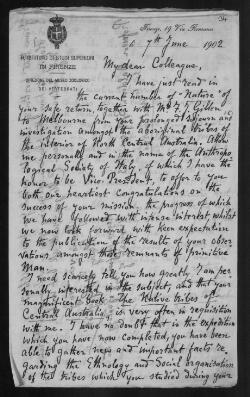 34
Firenze, 19 Via Romana
7th June 1902
R. ISTITUTO DI STUDI SUPERIORI
IN FIRENZE
DIREZIONE DEL MUSEO ZOOLOGICO
DEI VERTEBRATI
My dear Colleague,
I have just read in
the current number of "Nature" of
your safe return, together with Mr F. J. Gillen
to Melbourne from your prolonged sojourn and
investigation amongst the aboriginal tribes of
the interior of North Central Australia. Allow
me personally and in the name of the Anthropo-
logical Society of Italy, of which I have the
honor to be Vice President, to offer to you
both our heartiest congratulations on the
success of your mission, the progress of which
we have followed with intense interest, whilst
we now look forward with keen expectation
to the publication of the results of your obser-
vations amongst those remnants of "primitive
Man".
I need scarcely tell you how greatly I am per-
sonally interested in the subject, and that your
magnificent book "The Native tribes of
Central Australia" is very often in requisition
with me. I have no doubt that in the expedition
which you have now completed, you have been
able to gather new and important facts re-
garding the Ethnology and Social organisation
of the tribes which you studied during your